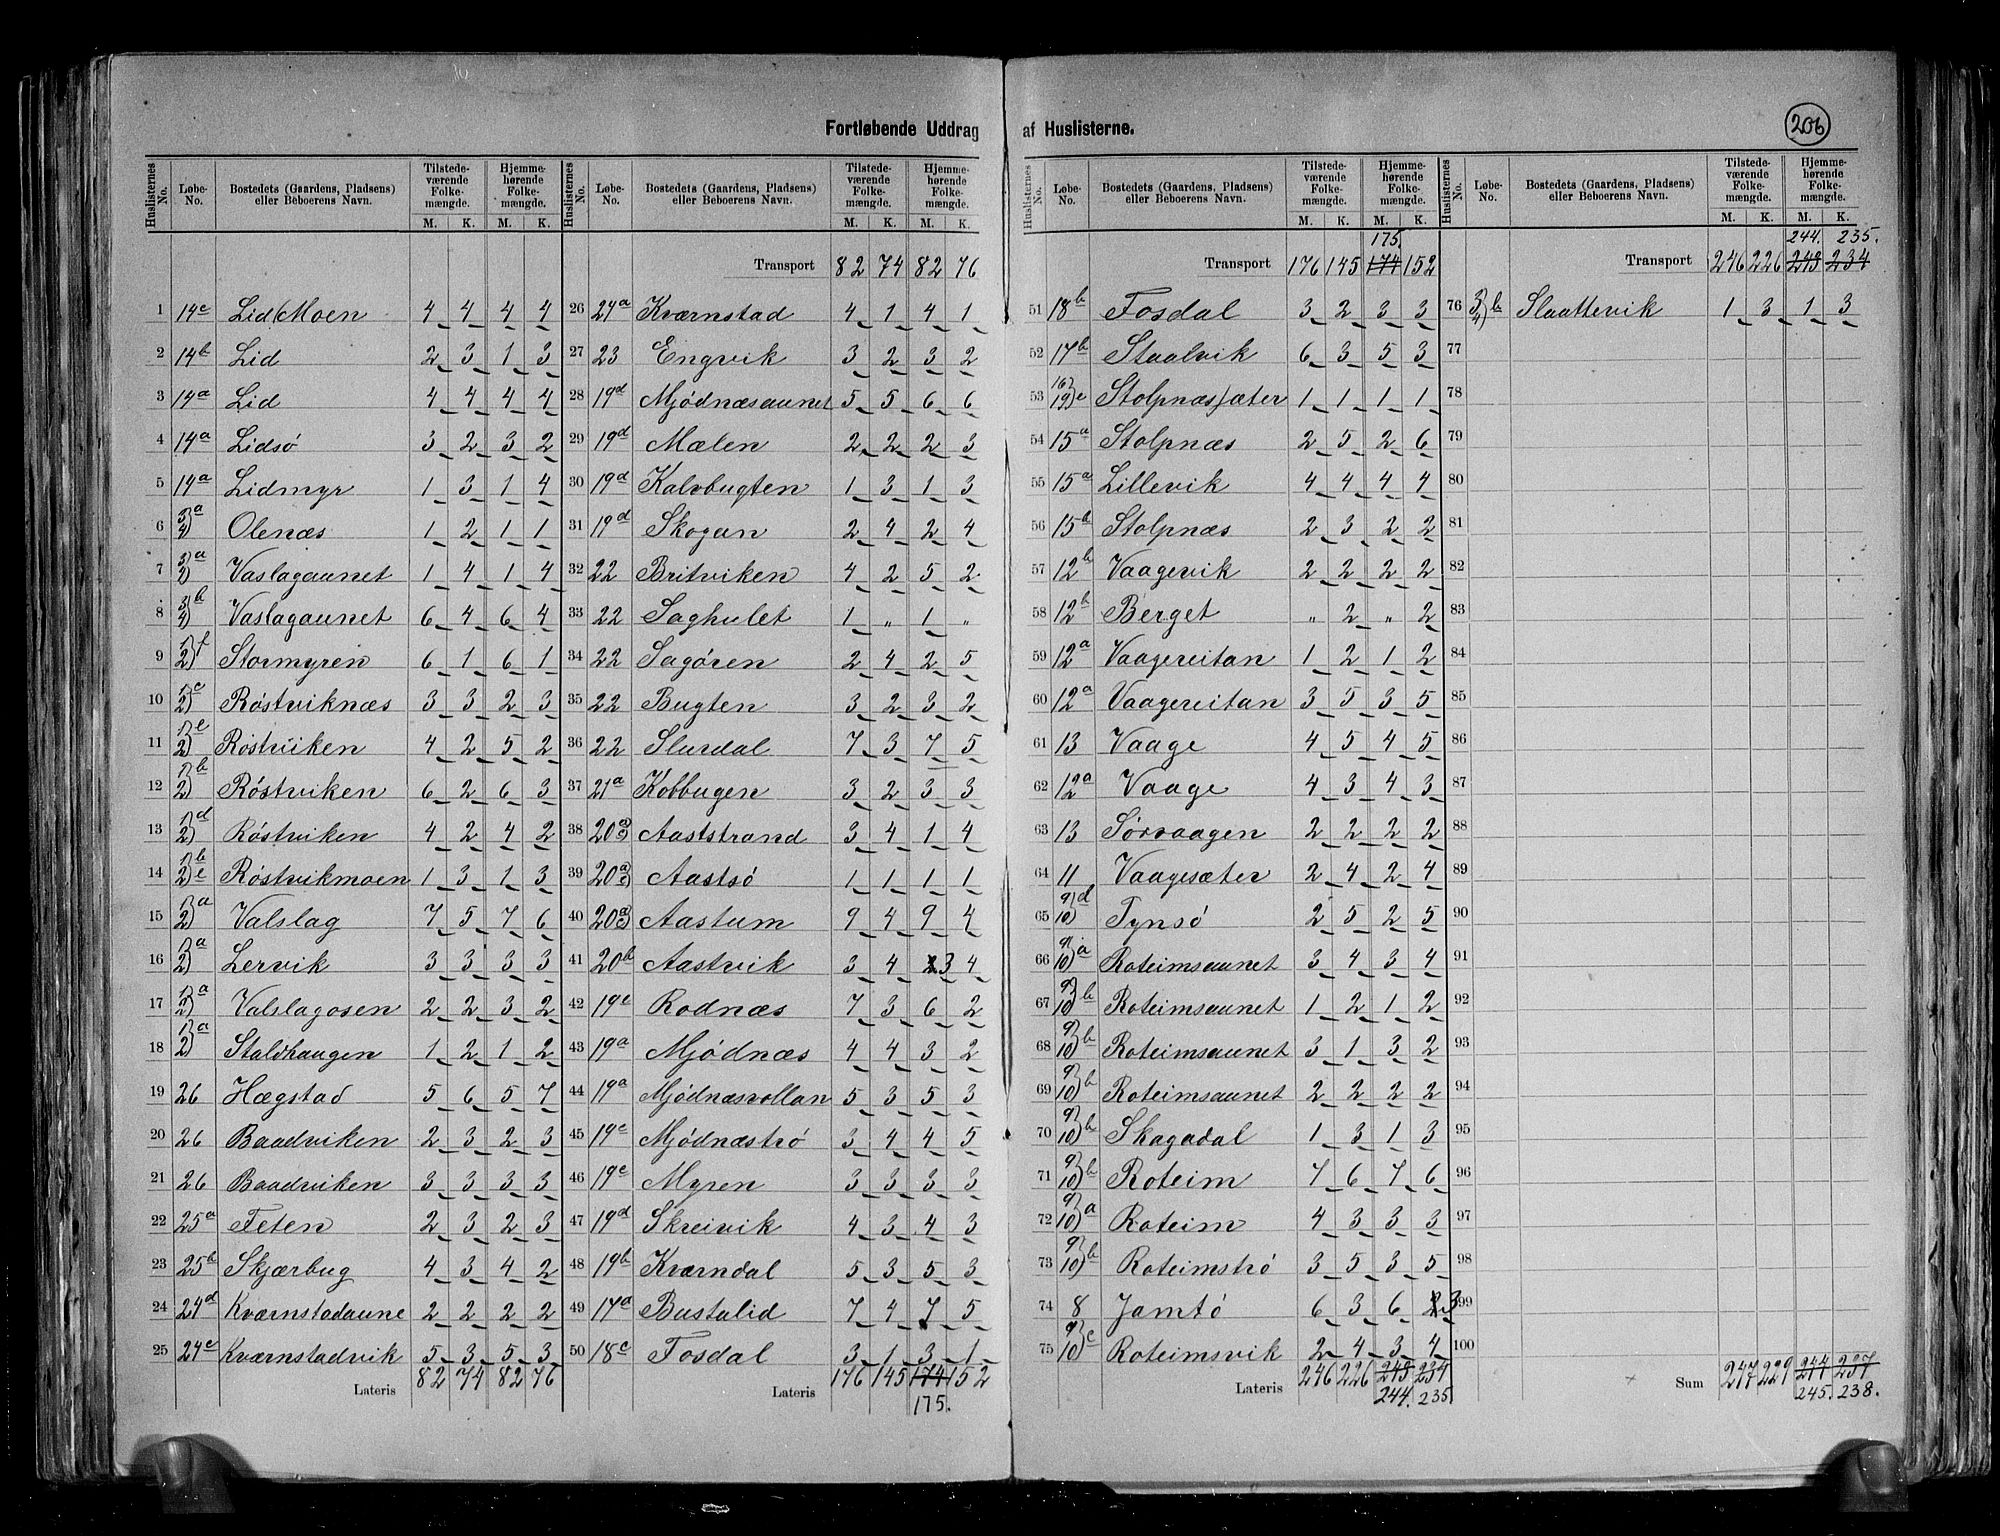 Fortløbende Uddrag af Huslisterne.
206
Huslisternes No. Løbe-No. Bostedets (Gaardens, Pladsens) eller Beboerens Navn. Tilstedeværende Folkemængde. M. K. Hjemmehørende Folkemængde. M. K.
1 14c Lid (Moen 4 4 4 4
2 14b Lid 2 3 1 3
3 14a Lid 4 4 4 4
4 14a Lidsø 3 2 3 2
5 14a Lidmyr 1 3 1 4
6 3/4)a Olenæs 1 2 1 1
7 3/4)a Vaslagaunet 1 4 1 4
8 3/4)b Vaslagaunet 6 4 6 4
9 1/2)f Stormyren 6 1 6 1
10 1/2)c Røstviknæs 3 3 2 3
11 1/2)e Røstviken 4 2 5 2
12 1/2)b Røstviken 6 2 6 3
13 1/2)d Røstviken 4 2 4 2
14 1/2)b e Røstvikmoen 1 3 1 3
15 1/2)a Valslag 7 5 7 6
16 1/2)a Lervik 3 3 3 3
17 1/2)a Valslagosen 2 2 3 2
18 1/2)a Staldhaugen 1 2 1 2
19 26 Hægstad 5 6 5 7
20 26 Baadviken 2 3 2 3
21 26 Baadviken 3 3 3 3
22 25a Feten 2 3 2 3
23 25b Skjærbug 4 3 4 2
24 24d Kværnstadaune 2 2 2 2
25 24c Kværnstadvik 5 3 5 3
Lateris 82 74 82 76
Huslisternes No. Løbe-No. Bostedets (Gaardens, Pladsens) eller Beboerens Navn. Tilstedeværende Folkemængde. M. K. Hjemmehørende Folkemængde. M. K.
Transport 82 74 82 76
26 24a Kværnstad 4 1 4 1
27 23 Engvik 3 2 3 2
28 19d Mjødnæsaunet 5 5 6 6
29 19d Mælen 2 2 2 3
30 19d Kalvbugten 1 3 1 3
31 19d Skogan 2 4 2 4
32 22 Britviken 4 2 5 2
33 22 Saghulet 1 " 1 "
34 22 Sagøren 2 4 2 5
35 22 Bugten 3 2 3 2
36 22 Slurdal 7 3 7 5
37 21a Kobbugen 3 2 3 3
38 20a Aaststrand 3 4 1 4
39 20a Aastsø 1 1 1 1
40 20a Aastum 9 4 9 4
41 20b Aastvik 3 4 3 4
42 19e Rodnæs 7 3 6 2
43 19a Mjødnæs 4 4 3 2
44 19a Mjødnæsvollan 5 3 5 3
45 19c Mjødnæstrø 3 4 4 5
46 19c Myren 3 3 3 3
47 19d Skreivik 4 3 4 3
48 19b Kværndal 5 3 5 3
49 17a Bustalid 7 4 7 5
50 18c Fosdal 3 1 3 1
Lateris 176 145 174 152
175.
Huslisternes No. Løbe-No. Bostedets (Gaardens, Pladsens) eller Beboerens Navn. Tilstedeværende Folkemængde. M. K. Hjemmehørende Folkemængde. M. K.
175.
Transport 176 145 174 152
51 18b Fosdal 3 2 3 3
52 17b Staalvik 6 3 5 3
53 16/19)e Stolpnæssæter 1 1 1 1
54 15a Stolpnæs 2 5 2 6
55 15a Lillevik 4 4 4 4
56 15b Stolpnæs 2 3 2 2
57 12b Vaagevik 2 2 2 2
58 12b Berget " 2 " 2
59 12a Vaagereitan 1 2 1 2
60 12a Vaagereitan 3 5 3 5
61 13 Vaage 4 5 4 5
62 12a Vaage 4 3 4 3
63 13 Sørvaagen 2 2 2 2
64 11 Vaagesæter 2 4 2 4
65 9/10)d Tynsø 2 5 2 5
66 9/10)a Roteimsaunet 3 4 3 4
67 9/10)b Roteimsaunet 1 2 1 2
68 9/10)b Roteimsaunet 3 1 3 2
69 9/10)b Roteimsaunet 2 2 2 2
70 9/10)b Skagadal 1 3 1 3
71 9/10)b Roteim 7 6 7 6
72 9/10)a Roteim 4 3 3 3
73 9/10)b Roteimstrø 3 5 3 5
74 8 Jamtø 6 3 6 3
75 9/10)c Roteimsvik 2 4 3 4
Lateris 246 226 243 234
244. 235.
Huslisternes No. Løbe-No. Bostedets (Gaardens, Pladsens) eller Beboerens Navn. Tilstedeværende Folkemængde. M. K. Hjemmehørende Folkemængde. M. K.
244. 235.
Transport 246 226 243 234
76 3/4)b Slaattevik 1 3 1 3
77
78
79
80
81
82
83
84
85
86
87
88
89
90
91
92
93
94
95
96
97
98
99
100
Sum 247 229 244 237
245. 238.